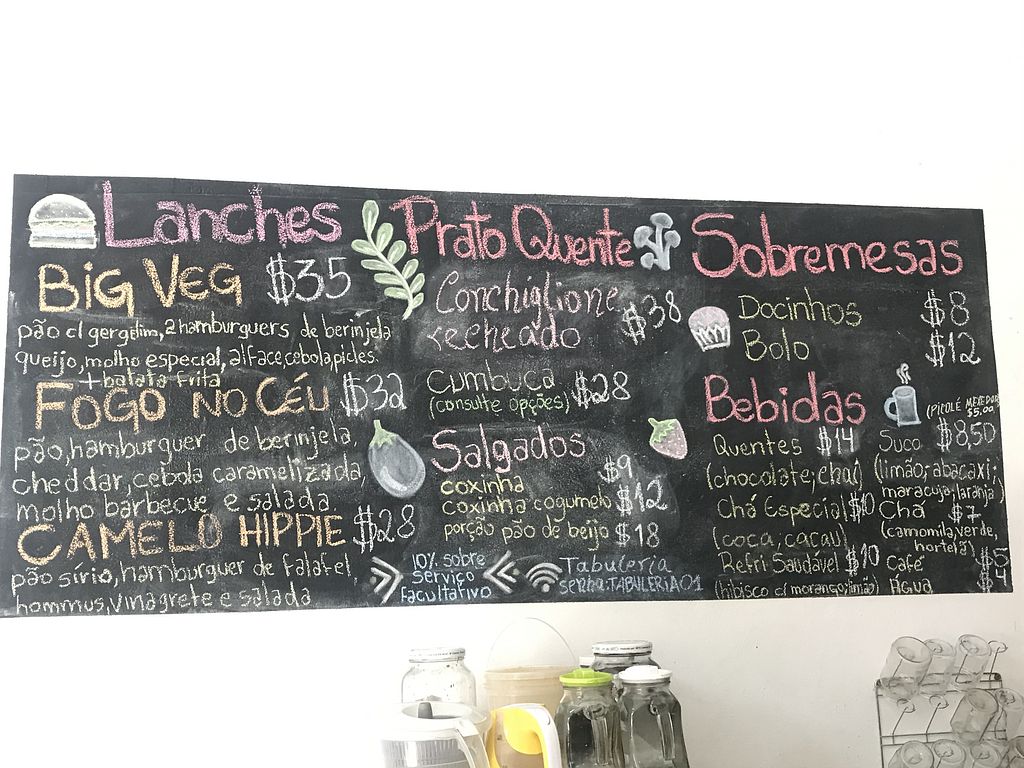 Lanches
BIG VEG $35
pão c/ gergelim, 2 hamburguers de berinjela
queijo, molho especial, alface, cebola, picles.
+ batata frita
FOGO NO CÉU $32
pão, hamburguer de berinjela,
cheddar, cebola caramelizada,
molho barbecue e salada
CAMELO HIPPIE $28
pão sírio, hamburguer de falafel,
hommus, vinagrete e salada
Prato Quente
Conchiglione
recheado $38
Cumbuca $28
(consulte opções)
Salgados
coxinha $9
coxinha cogumelo $12
porção pão de beijo $18
10% sobre
serviço
facultativo
Tabuleria
senha: TABULERIA01
Sobremesas
Docinhos $8
Bolo $12
Bebidas
(PICOLÉ ME E DOR
$5,00)
Quentes $14
(chocolate; chai)
Chá Especial $10
(coca, cacau)
Refri Saudável $10
(hibisco c/ morango; limão)
Suco $8,50
(limão; abacaxi;
maracujá, laranja)
Chá $7
(camomila, verde,
hortelã)
Café $5
Água $4